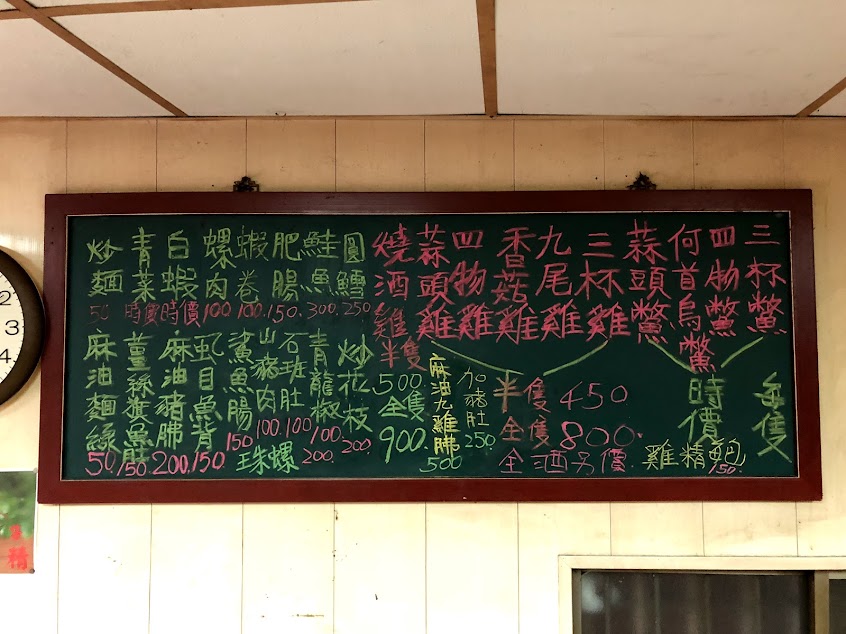 三杯鱉
四物鱉
何首烏鱉
蒜頭鱉
時價
每隻
三杯雞
九尾雞
香菇雞
四物雞
蒜頭雞
半隻450
全隻800.
全酒另價
雞精
150.
燒酒雞
半隻
500.
全隻
900.
加豬肚
250
麻油九雞
500
圓鱈
250
鮭魚
300.
肥腸
150.
蝦卷
100.
螺肉
100
白蝦
時價
青菜
時價
炒麵
50
炒花枝
200
青龍椒
100
石班肚
100
山豬肉
100
鯊魚腸
150
虱目魚背
150
麻油豬
200
薑絲
150
麻油麵線
50
珠螺
200
2
3
4
精